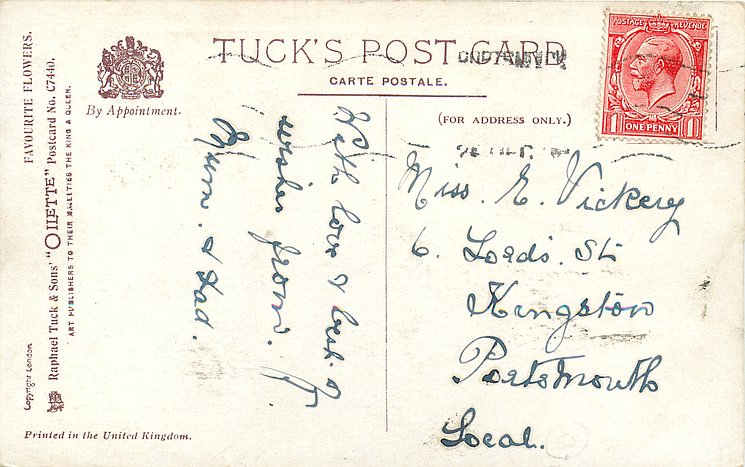 TUCK'S POST CARD
CARTE POSTALE.
(FOR ADDRESS ONLY.)
By Appointment.
FAVOURITE FLOWERS.
Raphael Tuck & Sons' "OILETTE" Postcard No. C7440.
ART PUBLISHERS TO THEIR MAJESTIES THE KING & QUEEN.
Copyright London
Printed in the United Kingdom.
POSTAGE REVENUE
1 ONE PENNY 1
With love & best
wishes from.
Mum. & Dad.
Miss. E. Vickery
6. Lords. St
Kingston
Portsmouth
Local.